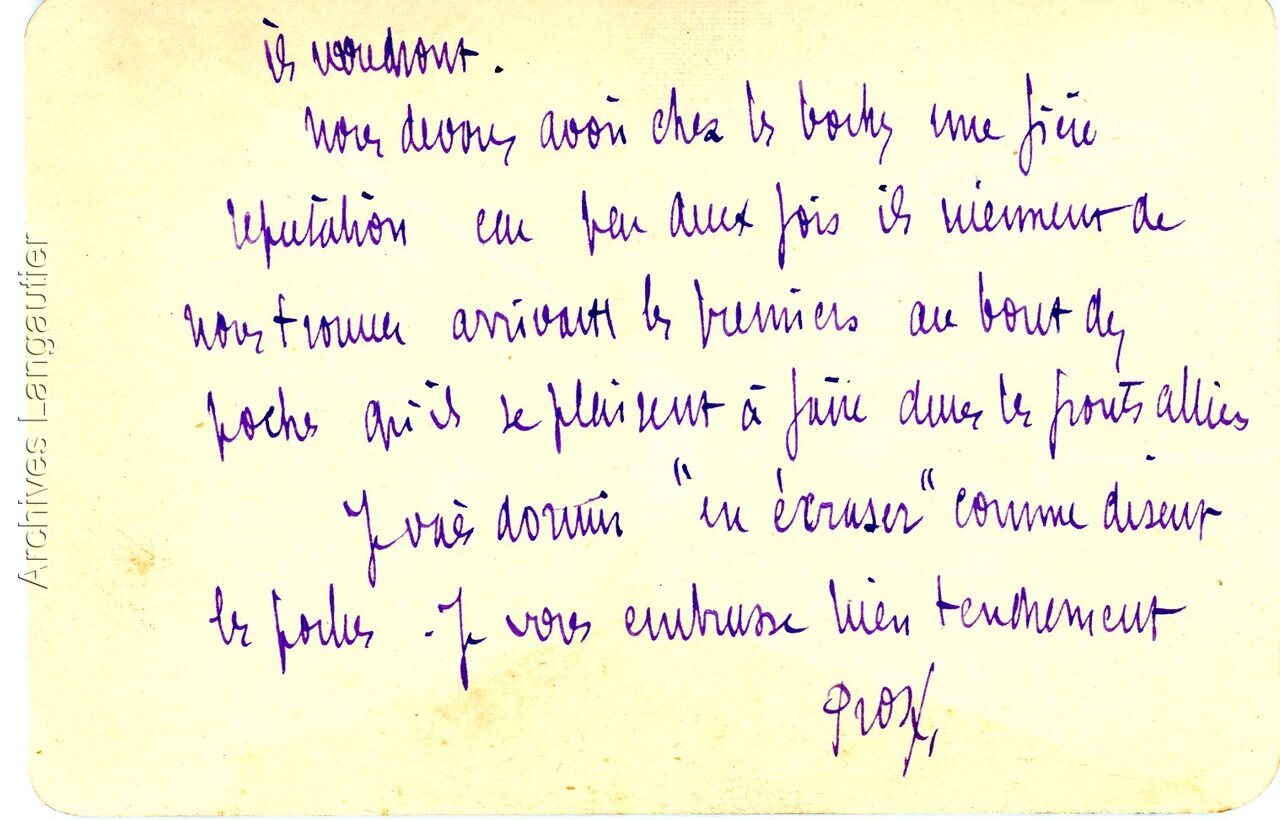 ils voudront.
Nous devons avoir chez les boches une fière
reputation car par deux fois ils viennent de
nous trouver arrivants les premiers au bout des
poches qu'ils se plaisent à faire dans les fronts alliés
Je vais dormir "en écraser" comme disent
les poilus - Je vous embrasse bien tendrement
Archives Langautier